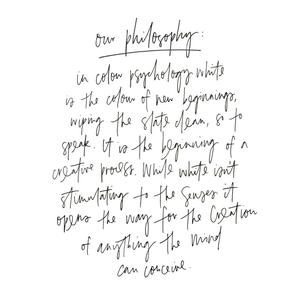 our philosophy:
in colour psychology white
is the colour of new beginnings,
wiping the slate clean, so to
speak. It is the beginning of a
creative process. While white isn't
stimulating to the senses it
opens the way for the creation
of anything the mind
can conceive.